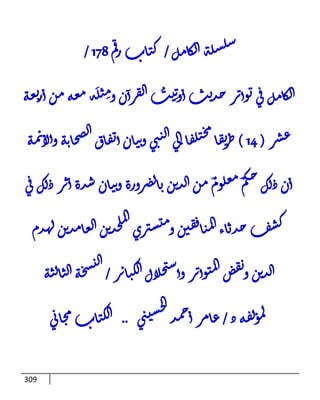 سلسلة الكامل / كتاب رقم 178 /
الكامل في تواتر حديث أوتيت القرآن ومِثلَه معه من أربعة
عشر ( 14 ) طريقا مختلفا إلي النبي وبيان اتفاق الصحابة والأئمة
أن ذلك حكمٌ معلومٌ من الدين بالضرورة وبيان شدة أثر ذلك في
كشف حدثاء المنافقين ومتستري الملحدين العامدين لهدم
الدين ونقض المتواتر واستحلال الكبائر / النسخة الثالثة
لمؤلفه د / عامر أحمد الحسيني .. الكتاب مجاني
309